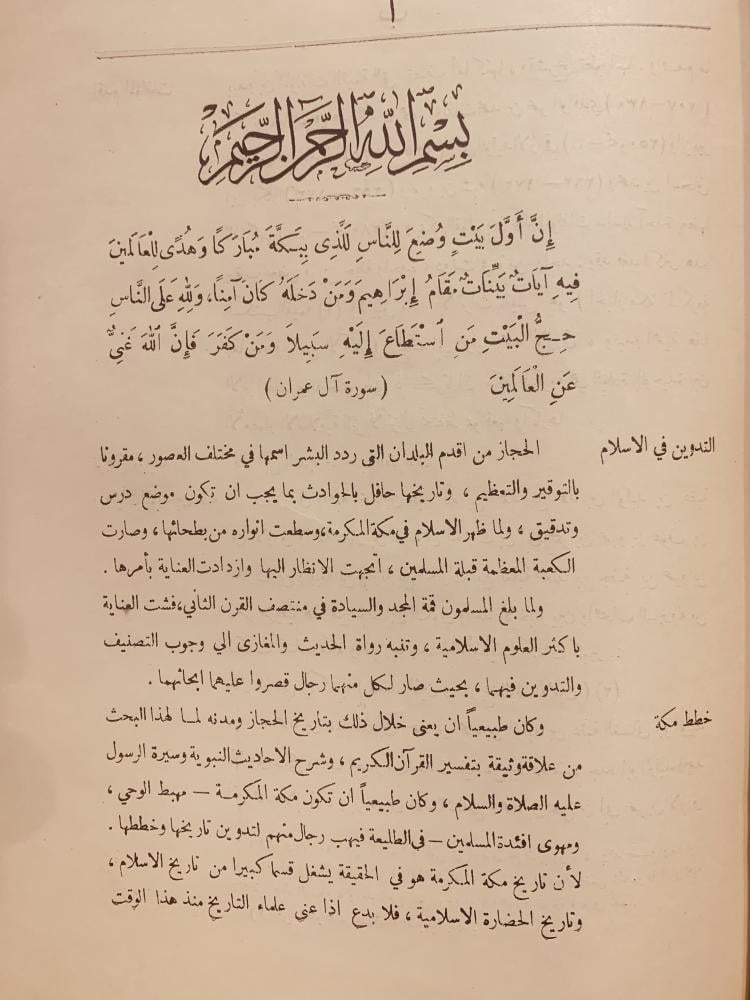 أ
بِسْمِ اللهِ الرَّحْمنِ الرَّحِيمِ
إِنَّ أَوَّلَ بَيْتٍ وُضِعَ لِلنَّاسِ لَلَّذِى بِبَكَّةَ مُبَارَكًا وَهُدًى لِلْعَالَمِينَ
فِيهِ آيَاتٌ بَيِّنَاتٌ مَقَامُ إِبْرَاهِيمَ وَمَنْ دَخَلَهُ كَانَ آمِنًا، وَلِلهِ عَلَى النَّاسِ
حِجُّ الْبَيْتِ مَنِ اسْتَطَاعَ إِلَيْهِ سَبِيلاً وَمَنْ كَفَرَ فَإِنَّ اللهَ غَنِىٌّ
عَنِ الْعَالَمِينَ ( سورة آل عمران )
التدوين في الاسلام
الحجاز من اقدم البلدان التى ردد البشر اسمها في مختلف العصور ، مقرونا
بالتوقير والتعظيم ، وتاريخها حافل بالحوادث بما يجب ان تكون موضع درس
وتدقيق ، ولما ظهر الاسلام في مكة المكرمة، وسطعت انواره من بطحائها ، وصارت
الكعبة المعظمة قبلة المسلمين ، اتجهت الانظار اليها وازدادت العناية بأمرها .
ولما بلغ المسلمون قمة المجد والسيادة في منتصف القرن الثاني، فشت العناية
باكثر العلوم الاسلامية ، وتنبه رواة الحديث والمغازى الي وجوب التصنيف
والتدوين فيهما ، بحيث صار لكل منهما رجال قصروا عليهما ابحاثهما .
خطط مكة
وكان طبيعياً ان يعنى خلال ذلك بتاريخ الحجاز ومدنه لما لهذا البحث
من علاقة وثيقة بتفسير القرآن الكريم ، وشرح الاحاديث النبوية وسيرة الرسول
عليه الصلاة والسلام ، وكان طبيعياً ان تكون مكة المكرمة — مهبط الوحي ،
ومهوى افئدة المسلمين — في الطليعة فيهب رجال منهم لتدوين تاريخها وخططها .
لأن تاريخ مكة المكرمة هو في الحقيقة يشغل قسما كبيرا من تاريخ الاسلام ،
وتاريخ الحضارة الاسلامية ، فلا بدع اذا عني علماء التاريخ منذ هذا الوقت